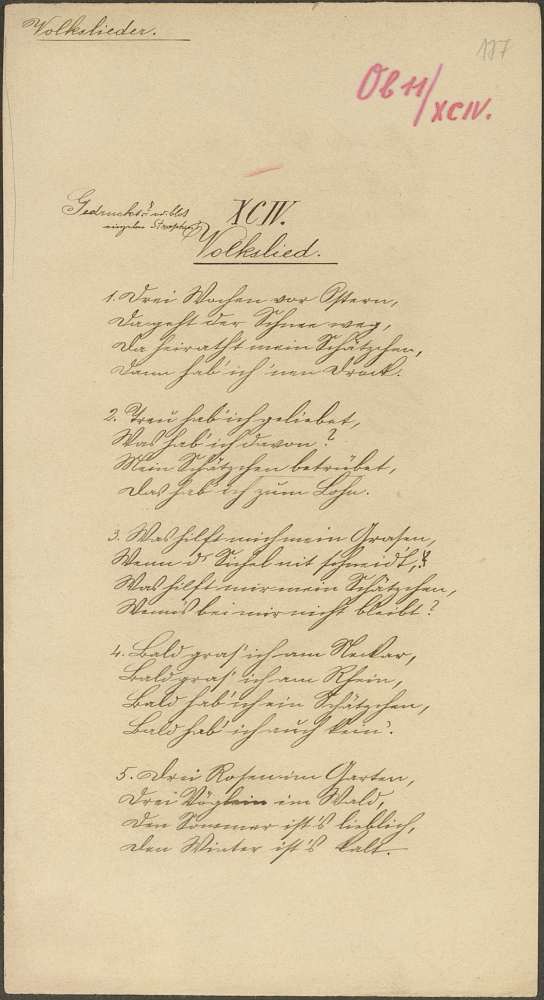 Volkslieder.
177
Ob 11/
XCIV.
Gedruckt? od. blos
einzelne Strophen?
XCIV.
Volkslied.
1. Drei Wochen vor Ostern,
Da geht der Schnee weg,
Da heirathet mein Schätzchen,
Dann hab' ich 'nen Dreck.
2. Treu hab' ich geliebet,
Was hab' ich davon?
Mein Schätzchen betrübet,
Das hab' ich zum Lohn.
3. Was hilft mich mein Grasen,
Wenn d' Sichel nit schneidt,
Was hilft mir mein Schätzchen,
Wenn's bei mir nicht bleibt?
4. Bald gras' ich am Neckar,
Bald gras' ich am Rhein,
Bald hab' ich ein Schätzchen,
Bald hab' ich auch kein'.
5. Drei Rosen im Garten,
Drei Vöglein im Wald,
Den Sommer ist's lieblich,
Den Winter ist's kalt.